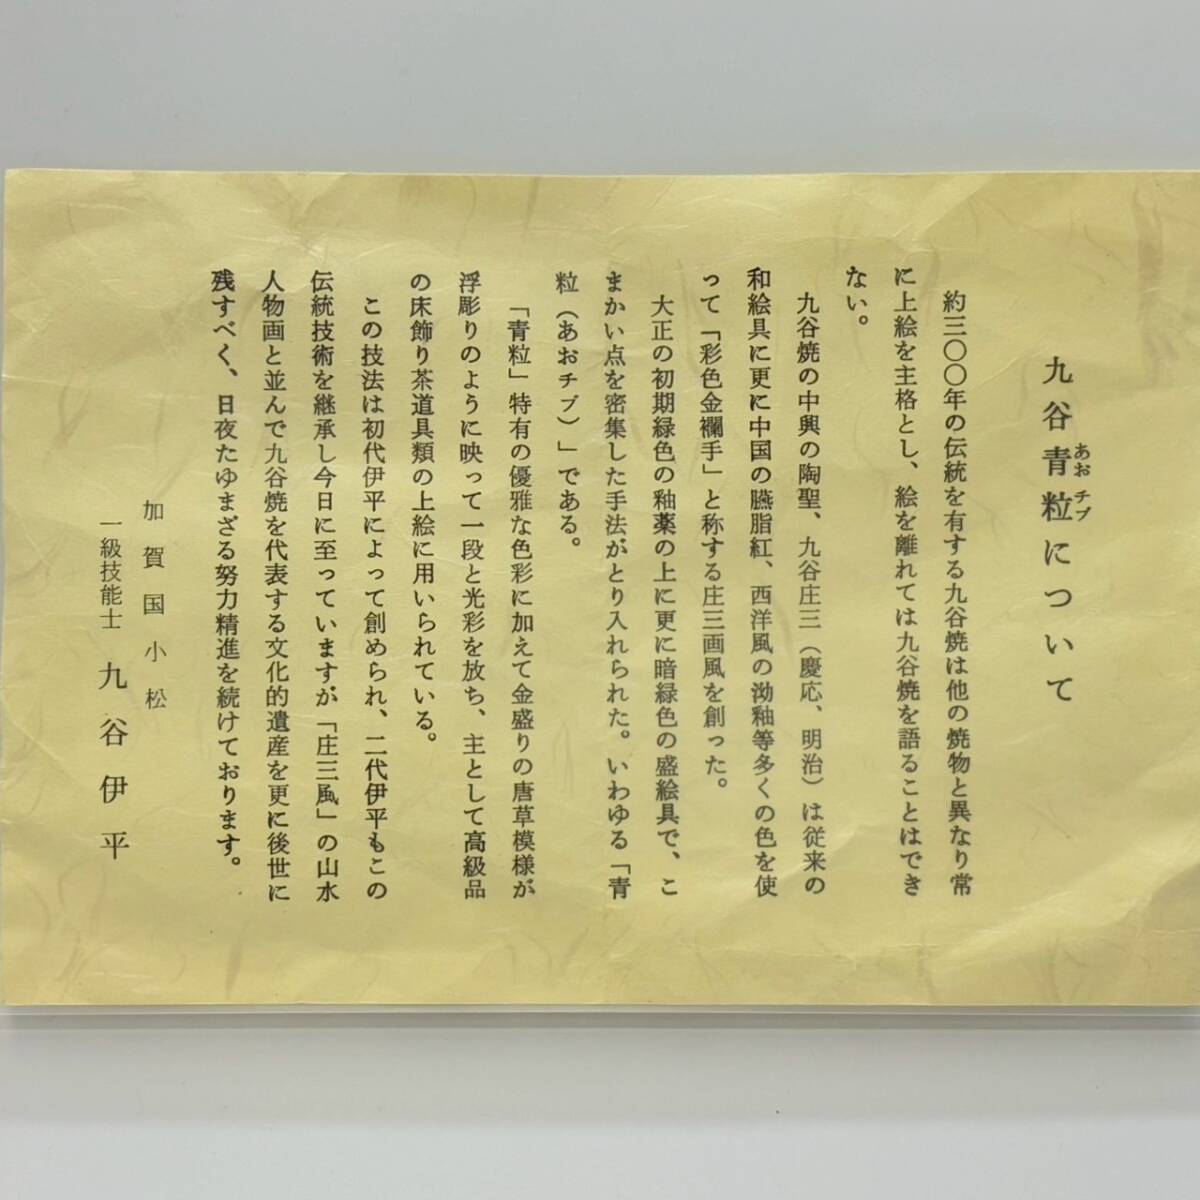 九谷青粒について
あおチブ
約三〇〇年の伝統を有する九谷焼は他の焼物と異なり常
に上絵を主格とし、絵を離れては九谷焼を語ることはでき
ない。
九谷焼の中興の陶聖、九谷庄三（慶応、明治）は従来の
和絵具に更に中国の臙脂紅、西洋風の泑釉等多くの色を使
って「彩色金襴手」と称する庄三画風を創った。
大正の初期緑色の釉薬の上に更に暗緑色の盛絵具で、こ
まかい点を密集した手法がとり入れられた。いわゆる「青
粒（あおチブ）」である。
「青粒」特有の優雅な色彩に加えて金盛りの唐草模様が
浮彫りのように映って一段と光彩を放ち、主として高級品
の床飾り茶道具類の上絵に用いられている。
この技法は初代伊平によって創められ、二代伊平もこの
伝統技術を継承し今日に至っていますが「庄三風」の山水
人物画と並んで九谷焼を代表する文化的遺産を更に後世に
残すべく、日夜たゆまざる努力精進を続けております。
加賀国小松
一級技能士 九谷伊平